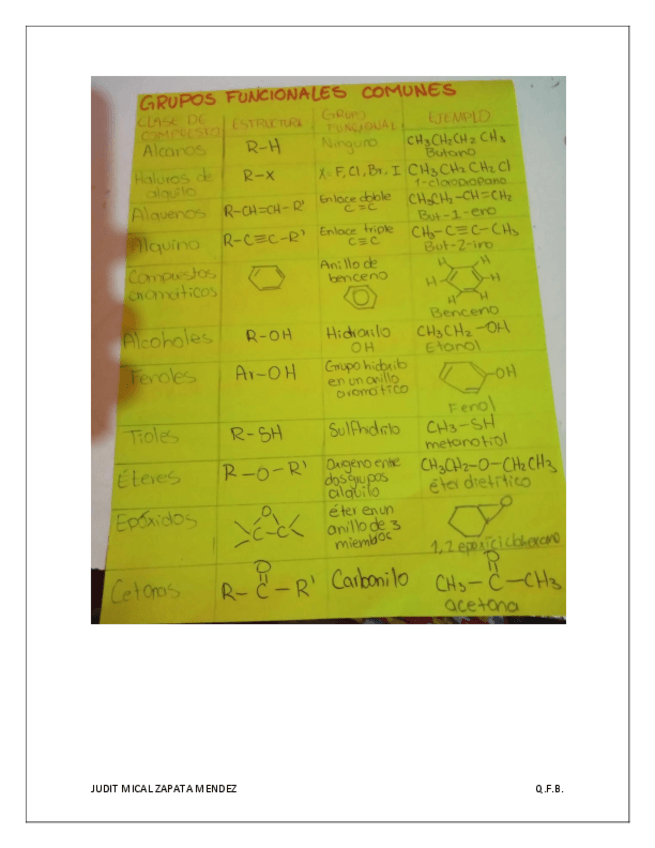 GRUPOS FUNCIONALES COMUNES
CLASE DE COMPUESTO ESTRUCTURA GRUPO FUNCIONAL EJEMPLO
Alcanos R-H Ninguno CH3CH2CH2CH3 Butano
Haluros de alquilo R-X X=F, Cl, Br, I CH3CH2CH2Cl 1-cloropropano
Alquenos R-CH=CH-R' Enlace doble C=C CH3CH2-CH=CH2 But-1-eno
Alquino R-C≡C-R' Enlace triple C≡C CH3-C≡C-CH3 But-2-ino
Compuestos aromáticos Anillo de benceno H H H H H H Benceno
Alcoholes R-OH Hidroxilo OH CH3CH2-OH Etanol
Fenoles Ar-OH Grupo hidroxilo en un anillo aromático -OH Fenol
Tioles R-SH Sulfhidrilo CH3-SH metanotiol
Éteres R-O-R' Oxígeno entre dos grupos alquilo CH3CH2-O-CH2CH3 éter dietílico
Epóxidos O C-C éter en un anillo de 3 miembros O 1,2 epoxiciclohexano
Cetonas R-C-R' O Carbonilo CH3-C-CH3 O acetona
JUDIT MICAL ZAPATA MENDEZ Q.F.B.